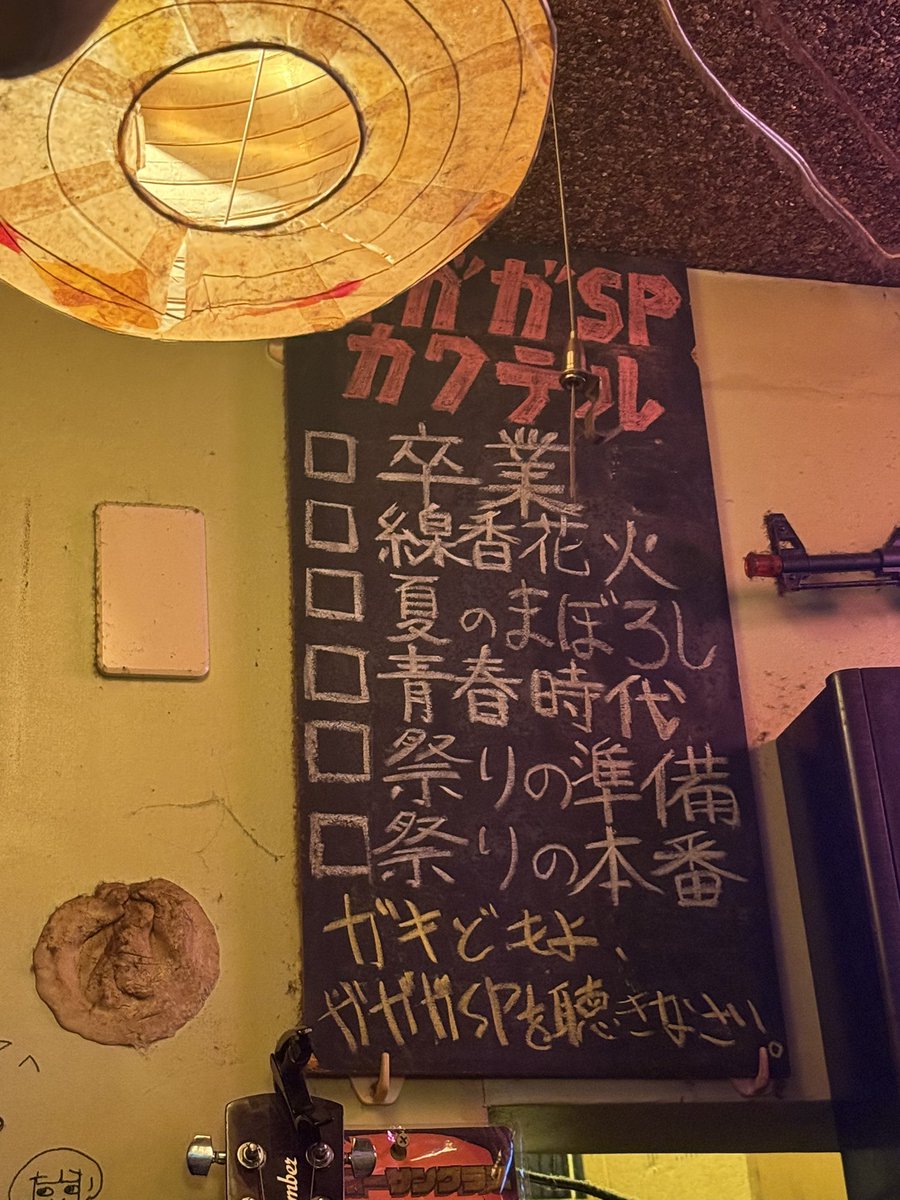 ガガSP
カクテル
□ 卒業
□ 線香花火
□ 夏のまぼろし
□ 青春時代
□ 祭りの準備
□ 祭りの本番
ガキどもよ、
ガガガSPを聴きなさい。
mber